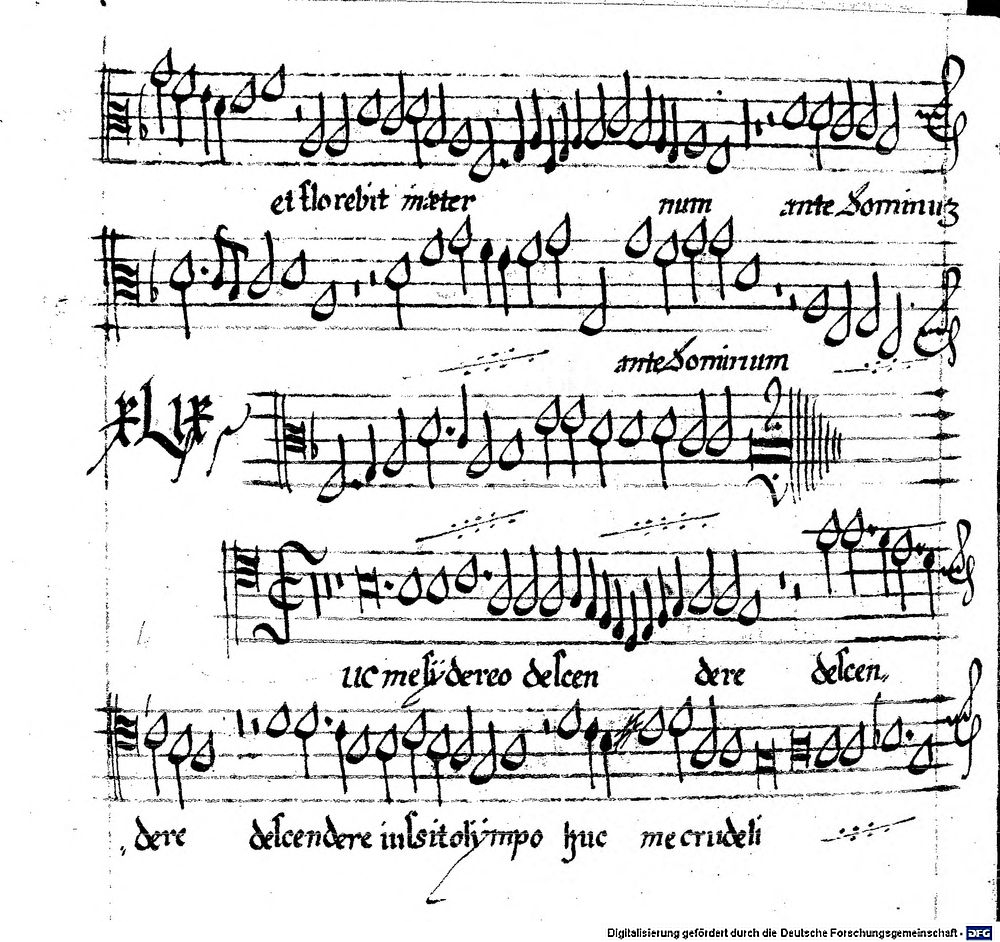 et florebit in æter num ante Dominuz
ante Dominum
XLIX
uc me sydereo descen dere descen„
„dere descendere iussit olympo huc me crudeli
Digitalisierung gefördert durch die Deutsche Forschungsgemeinschaft - DFG